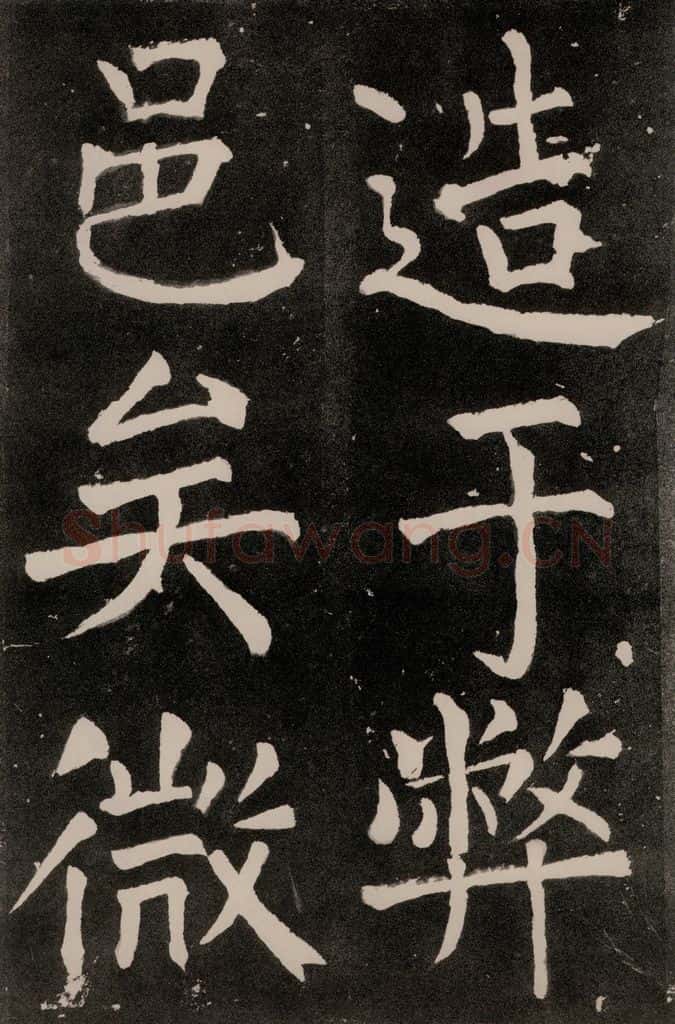 造于弊
邑矣微
Shufawang.CN